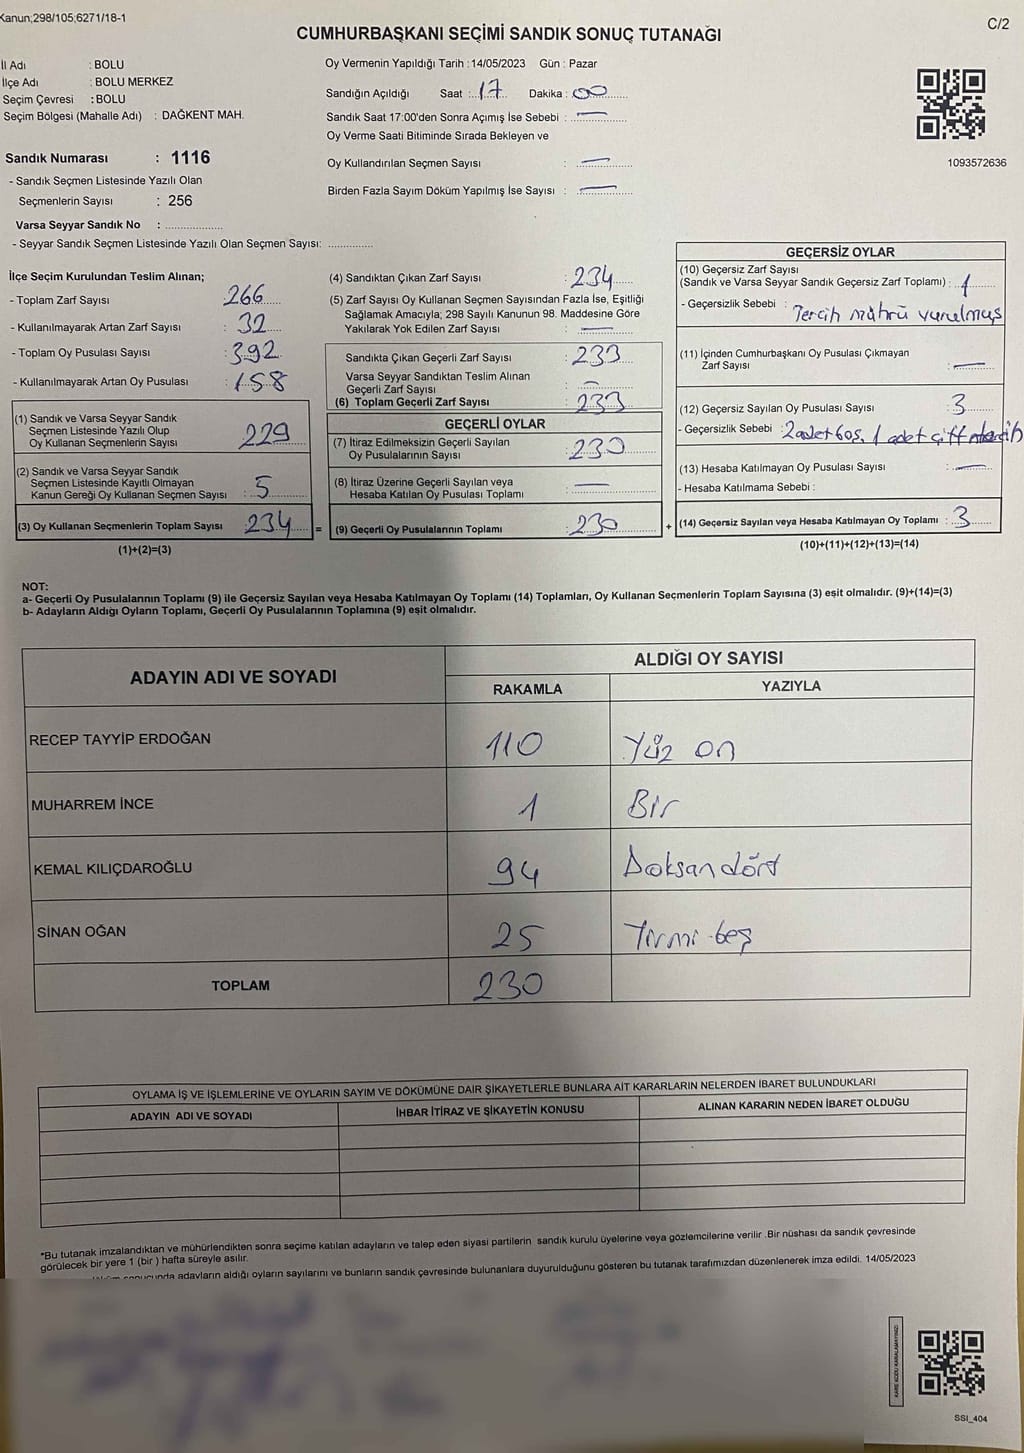 Kanun;298/105;6271/18-1
C/2
CUMHURBAŞKANI SEÇİMİ SANDIK SONUÇ TUTANAĞI
İl Adı : BOLU
İlçe Adı : BOLU MERKEZ
Seçim Çevresi : BOLU
Seçim Bölgesi (Mahalle Adı) : DAĞKENT MAH.
Sandık Numarası : 1116
- Sandık Seçmen Listesinde Yazılı Olan
Seçmenlerin Sayısı : 256
Varsa Seyyar Sandık No : ......................
- Seyyar Sandık Seçmen Listesinde Yazılı Olan Seçmen Sayısı: ................
Oy Vermenin Yapıldığı Tarih : 14/05/2023 Gün : Pazar
Sandığın Açıldığı Saat : 17 Dakika : 00
Sandık Saat 17:00'den Sonra Açımış İse Sebebi : —
Oy Verme Saati Bitiminde Sırada Bekleyen ve
Oy Kullandırılan Seçmen Sayısı : —
Birden Fazla Sayım Döküm Yapılmış İse Sayısı : —
1093572636
İlçe Seçim Kurulundan Teslim Alınan;
- Toplam Zarf Sayısı : 266
- Kullanılmayarak Artan Zarf Sayısı : 32
- Toplam Oy Pusulası Sayısı : 392
- Kullanılmayarak Artan Oy Pusulası : 158
(1) Sandık ve Varsa Seyyar Sandık
Seçmen Listesinde Yazılı Olup
Oy Kullanan Seçmenlerin Sayısı : 229
(2) Sandık ve Varsa Seyyar Sandık
Seçmen Listesinde Kayıtlı Olmayan
Kanun Gereği Oy Kullanan Seçmen Sayısı : 5
(3) Oy Kullanan Seçmenlerin Toplam Sayısı : 234 =
(1)+(2)=(3)
(4) Sandıktan Çıkan Zarf Sayısı : 234
(5) Zarf Sayısı Oy Kullanan Seçmen Sayısından Fazla İse, Eşitliği
Sağlamak Amacıyla; 298 Sayılı Kanunun 98. Maddesine Göre
Yakılarak Yok Edilen Zarf Sayısı : —
Sandıkta Çıkan Geçerli Zarf Sayısı : 233
Varsa Seyyar Sandıktan Teslim Alınan
Geçerli Zarf Sayısı : —
(6) Toplam Geçerli Zarf Sayısı : 233
GEÇERLİ OYLAR
(7) İtiraz Edilmeksizin Geçerli Sayılan
Oy Pusulalarının Sayısı : 230
(8) İtiraz Üzerine Geçerli Sayılan veya
Hesaba Katılan Oy Pusulası Toplamı : —
(9) Geçerli Oy Pusulalarının Toplamı : 230 +
GEÇERSİZ OYLAR
(10) Geçersiz Zarf Sayısı
(Sandık ve Varsa Seyyar Sandık Geçersiz Zarf Toplamı) : 1
- Geçersizlik Sebebi : Tercih mührü vurulmuş
(11) İçinden Cumhurbaşkanı Oy Pusulası Çıkmayan
Zarf Sayısı : —
(12) Geçersiz Sayılan Oy Pusulası Sayısı : 3
- Geçersizlik Sebebi : 2 adet boş, 1 adet çift tercih
(13) Hesaba Katılmayan Oy Pusulası Sayısı : —
- Hesaba Katılmama Sebebi :
(14) Geçersiz Sayılan veya Hesaba Katılmayan Oy Toplamı : 3
(10)+(11)+(12)+(13)=(14)
NOT:
a- Geçerli Oy Pusulalarının Toplamı (9) ile Geçersiz Sayılan veya Hesaba Katılmayan Oy Toplamı (14) Toplamları, Oy Kullanan Seçmenlerin Toplam Sayısına (3) eşit olmalıdır. (9)+(14)=(3)
b- Adayların Aldığı Oyların Toplamı, Geçerli Oy Pusulalarının Toplamına (9) eşit olmalıdır.
ADAYIN ADI VE SOYADI
ALDIĞI OY SAYISI
RAKAMLA YAZIYLA
RECEP TAYYİP ERDOĞAN 110 Yüz on
MUHARREM İNCE 1 Bir
KEMAL KILIÇDAROĞLU 94 Doksan dört
SİNAN OĞAN 25 Yirmi beş
TOPLAM 230
OYLAMA İŞ VE İŞLEMLERİNE VE OYLARIN SAYIM VE DÖKÜMÜNE DAİR ŞİKAYETLERLE BUNLARA AİT KARARLARIN NELERDEN İBARET BULUNDUKLARI
ADAYIN ADI VE SOYADI İHBAR İTİRAZ VE ŞİKAYETİN KONUSU ALINAN KARARIN NEDEN İBARET OLDUĞU
*Bu tutanak imzalandıktan ve mühürlendikten sonra seçime katılan adayların ve talep eden siyasi partilerin sandık kurulu üyelerine veya gözlemcilerine verilir .Bir nüshası da sandık çevresinde
görülecek bir yere 1 (bir ) hafta süreyle asılır.
adayların aldığı oyların sayılarını ve bunların sandık çevresinde bulunanlara duyurulduğunu gösteren bu tutanak tarafımızdan düzenlenerek imza edildi. 14/05/2023
KARE KODU KARALAMAYINIZ!
SSI_404